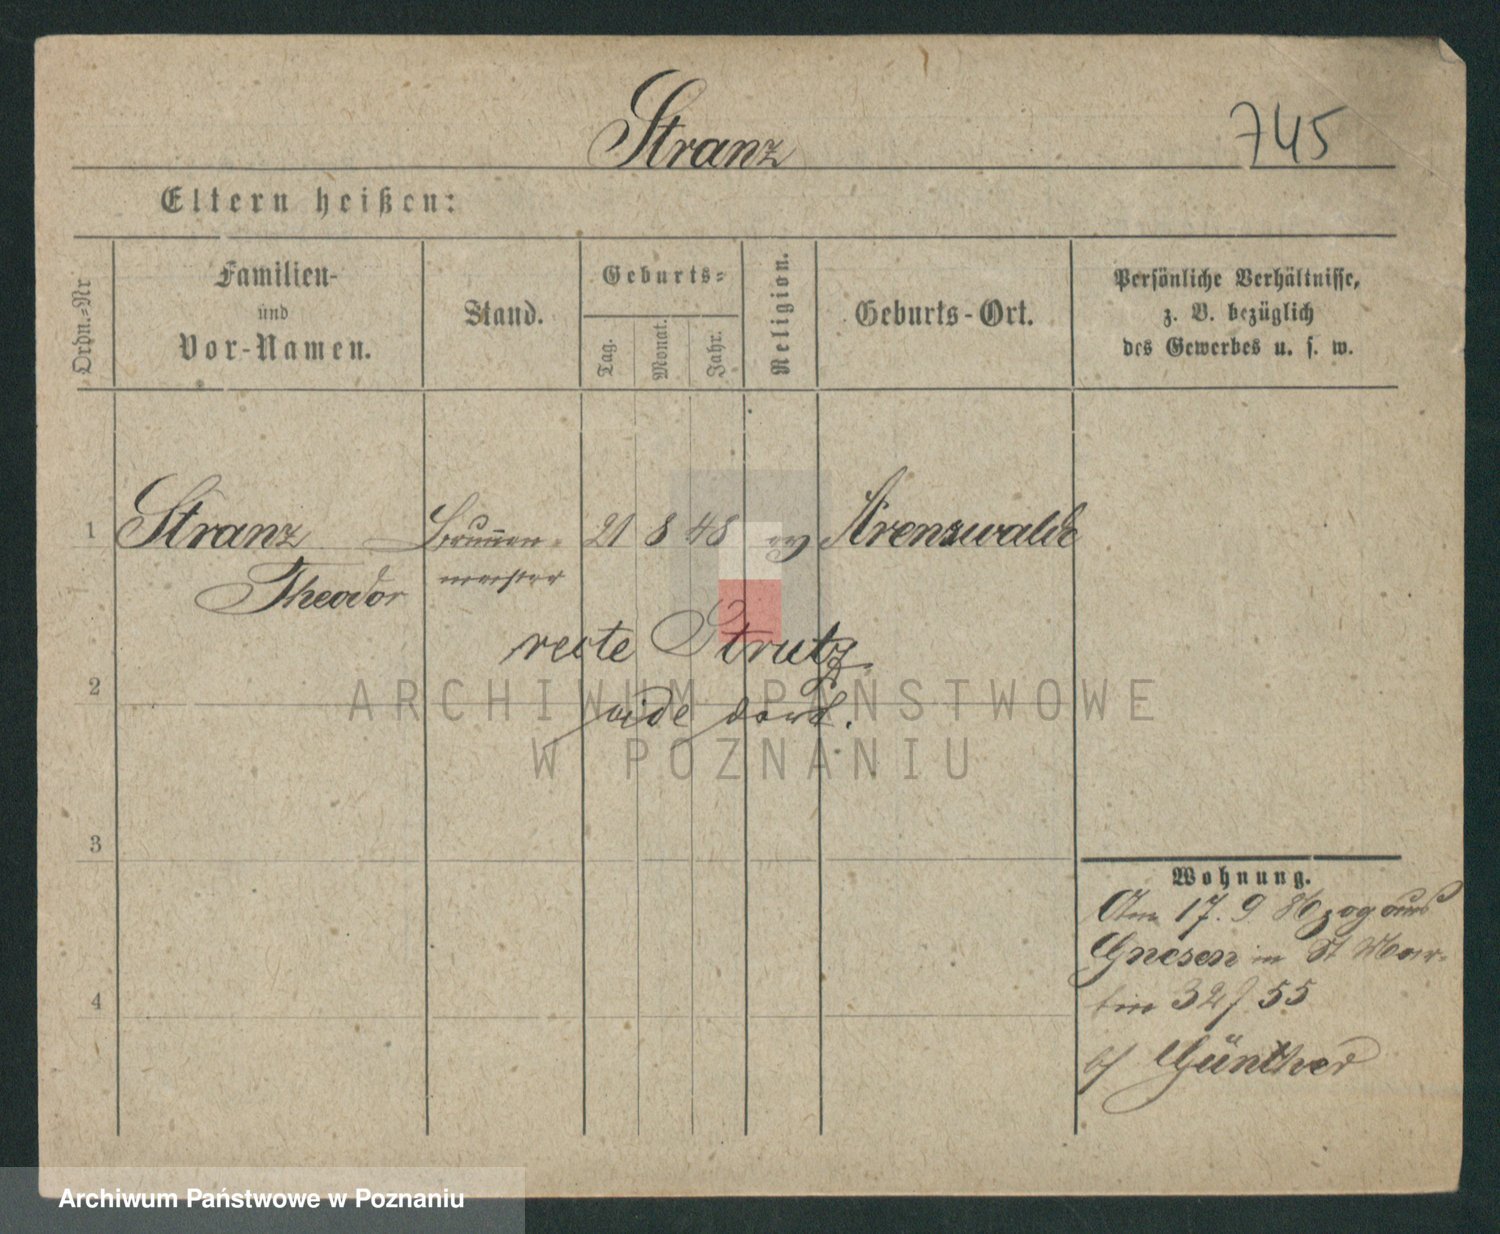 Stranz
745
Eltern heißen:
Ordn.=Nr
Familien-
und
Vor-Namen.
Stand.
Geburts=
Tag.
Monat.
Jahr.
Religion.
Geburts-Ort.
Persönliche Verhältnisse,
z. B. bezüglich
des Gewerbes u. s. w.
1 Stranz Brunnen- 21 8 48 ev Arenswalde
Theodor meister
recte Strutz
2
vide dort.
3
4
Wohnung.
Am 17. 9. 86 zog aus
Gnesen in St Mar-
tin 32/55
b/ Günther
ARCHIWUM PAŃSTWOWE
W POZNANIU
Archiwum Państwowe w Poznaniu